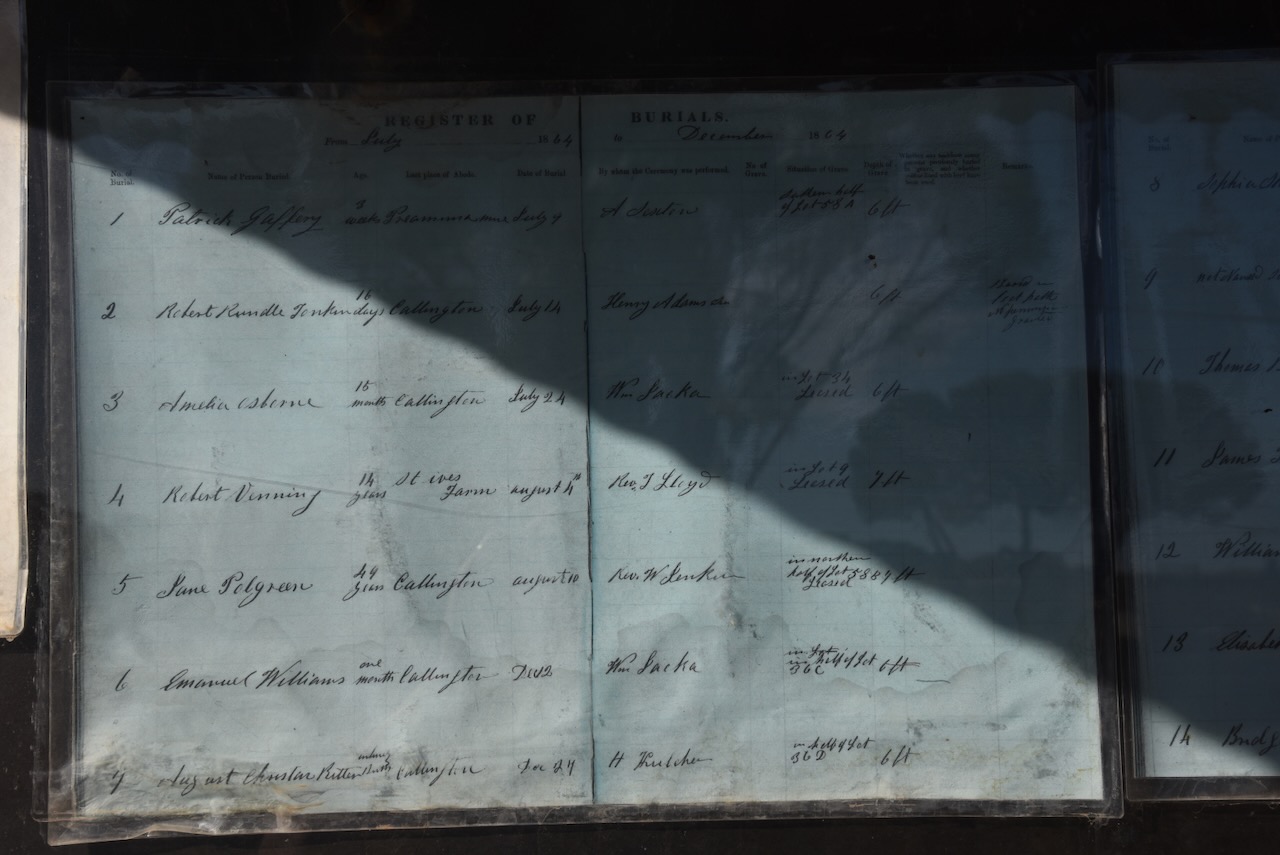 REGISTER OF BURIALS.
From July 1864 to December 1864
No. of Burial. Name of Person Buried. Age. Last place of Abode. Date of Burial By whom the Ceremony was performed. No. of Grave. Situation of Grave. Depth of Grave. Remarks.
1 Patrick Gaffery 3 weeks July 4 A Sexton half of Lot 58A 6 ft
2 Robert Rundle Jenkin 16 days Callington July 14 Henry Adams 6 ft
3 Amelia Osborne 15 months Callington July 24 Wm Lacka in Lot 34 Leased 6 ft
4 Robert Venning 14 years St ives Farm august 4th Rev. J Lloyd in Lot 9 Leased 7 ft
5 Jane Polgreen 49 years Callington august 10 Rev. W Jenkin in northen half of Lot 58 Leased 7 ft
6 Emanuel Williams one month Callington Dec 2 Wm Lacka in Lot in half of Lot 36C 6 ft
7 August Callington Dec 27 H in half of Lot 36D 6 ft
8
9 not named
10 Thomas
11 James
12 William
13
14